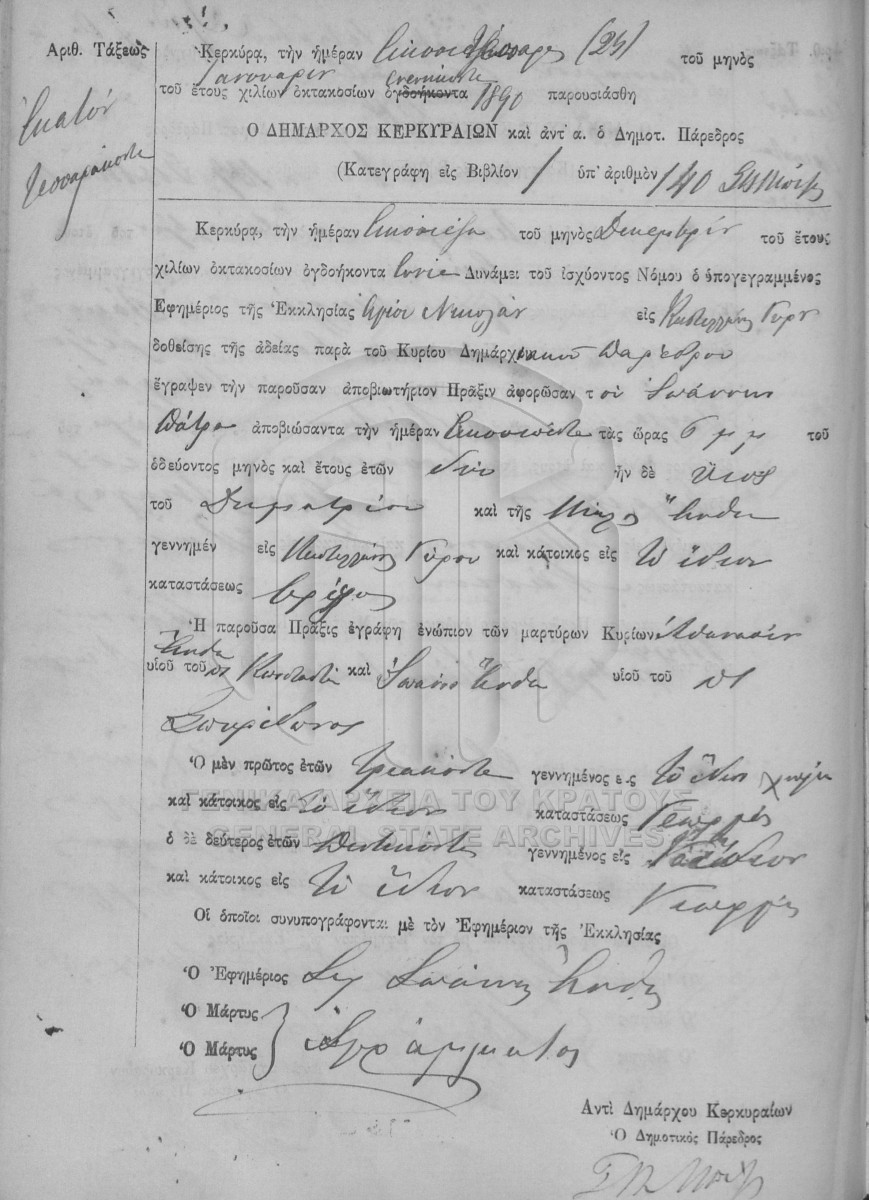 Ἀριθ. Τάξεως
Ἑκατόν
τεσσαράκοντα
Κερκύρα, τὴν ἡμέραν εἰκοσιτέσσαρες (24) τοῦ μηνὸς
Ἰανουαρίου ἐνενήκοντα
τοῦ ἔτους χιλίων ὀκτακοσίων ὀγδοήκοντα 1890 παρουσιάσθη
Ὁ ΔΗΜΑΡΧΟΣ ΚΕΡΚΥΡΑΙΩΝ καὶ ἀντ' α. ὁ Δημοτ. Πάρεδρος
(Κατεγράφη εἰς Βιβλίον 1 ὑπ' ἀριθμὸν 140
Κερκύρα, τὴν ἡμέραν εἰκοσιέξ τοῦ μηνὸς Δεκεμβρίου τοῦ ἔτους
χιλίων ὀκτακοσίων ὀγδοήκοντα ἐννέα Δυνάμει τοῦ ἰσχύοντος Νόμου ὁ ὑπογεγραμμένος
Ἐφημέριος τῆς Ἐκκλησίας Ἁγίου Νικολάου εἰς Καστελλάνους Γύρου
δοθείσης τῆς ἀδείας παρὰ τοῦ Κυρίου Δημάρχιακοῦ Παρέδρου
ἔγραψεν τὴν παροῦσαν ἀποβιωτήριον Πρᾶξιν ἀφορῶσαν τ οῦ Ἰωάννης
ἀποβιώσαντα τὴν ἡμέραν εἰκοσιπέντε τὰς ὥρας 6 μ μ τοῦ
ὁδεύοντος μηνὸς καὶ ἔτους ἐτῶν δύο ἦν δὲ υἱος
τοῦ Δημητρίου καὶ τῆς
γεννημέν εἰς Καστελλάνους Γύρου καὶ κάτοικος εἰς τὸ ἴδιον
καταστάσεως βρέφος
Ἡ παροῦσα Πρᾶξις ἐγράφη ἐνώπιον τῶν μαρτύρων Κυρίων Ἀθανασίου
υἱοῦ τοῦ Κωνσταντή καὶ Ἰωάννου υἱοῦ τοῦ
Σπυρίδωνος
Ὁ μὲν πρῶτος ἐτῶν τριακόντα γεννημένος εἰς τὸ ἴδιον χωρίον
καὶ κάτοικος εἰς τὸ ἴδιον καταστάσεως Γεωργός
ὁ δὲ δεύτερος ἐτῶν πεντήκοντα γεννημένος εἰς τὸ ἴδιον
καὶ κάτοικος εἰς τὸ ἴδιον καταστάσεως Γεωργός
Οἱ ὁποῖοι συνυπογράφονται μὲ τὸν Ἐφημέριον τῆς Ἐκκλησίας
Ὁ Ἐφημέριος Ἰωάννης
Ὁ Μάρτυς
Ὁ Μάρτυς } Ἀγράμματος
Ἀντὶ Δημάρχου Κερκυραίων
Ὁ Δημοτικὸς Πάρεδρος
ΓΕΝΙΚΑ ΑΡΧΕΙΑ ΤΟΥ ΚΡΑΤΟΥΣ
GENERAL STATE ARCHIVES